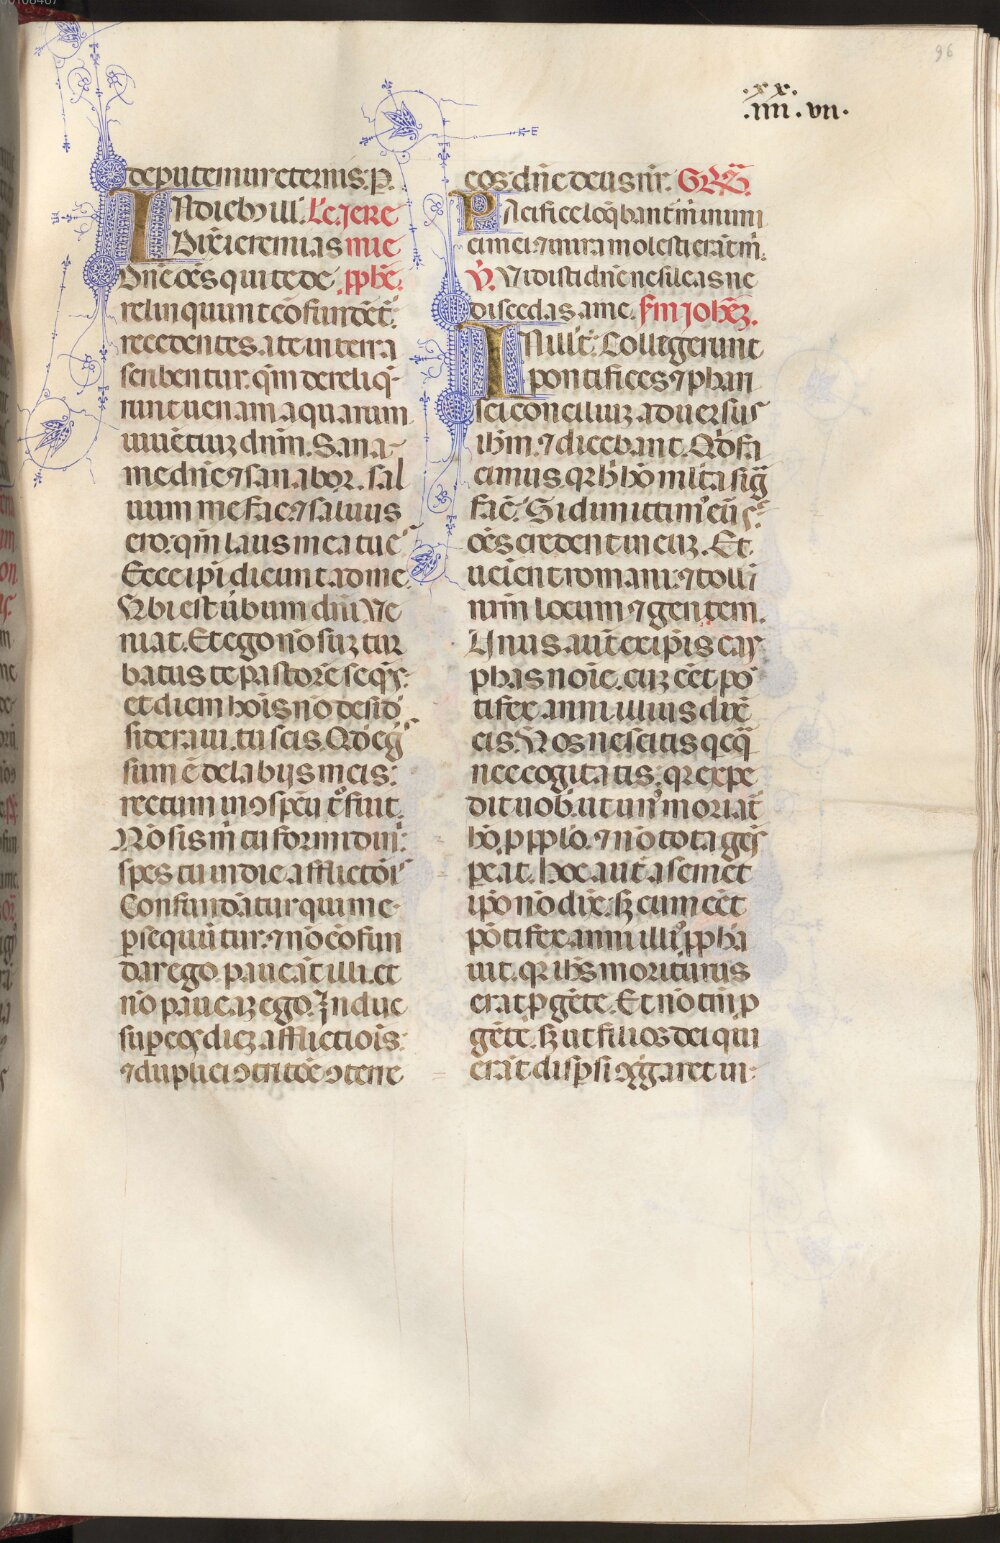 96
.xx.
.iiii.vii.
deputemur eternis. P.
In dieb; ill'. Lc̄. Jere
Dixit ieremias mie
Dn̄e oēs qui te de pphē.
relinquunt cōfundēt̄.
recedentes a te in terra
scribentur. qm̄ dereliq̄
runt uenam aquarum
uiuētiuꝫ dnm̄. Sana
me dn̄e ⁊ sanabor. sal
uum me fac. ⁊ saluus
ero. qm̄ laus mea tu ē.
Ecce ip̄i dicunt ad me.
Vbi est uerbum dn̄i. Ve
niat. Et ego nō suꝫ tur
batus te pastorē seqn̄s.
et diem hoīs nō desid
sideraui. tu scis. Qd̄ eḡ
sum ē de labijs meis.
rectum in ↄspcū t° fuit.
Nō sis m̄ tu formidini.
spes tu in die afflictōis
Confundātur qui me
ꝑsequūtur. ⁊ nō cōfun
dar ego. paueāt illi. et
nō paueaꝫ ego. Induc
suꝑ eos dieꝫ afflictiois.
⁊ duplici ↄtritōe ↄtere
eos dn̄e deus nr̄. GRĀ.
Pacifice loq̄bant̄ m̄ inimi
ci mei. ⁊ in ira molesti erāt m̄.
V̄. Vidisti dn̄e ne sileas ne
discedas a me. Sm̄ Joheꝫ.
In ill' t̄. Collegerunt
pontifices ⁊ phari
sei conciliuꝫ aduersus
ihm̄. ⁊ dicebant. Qd̄ fa
cimus. qr h̄ hō mlta sig̃
fac̄. Si dimittim' eū s̄
oēs credent in euꝫ. Et
uenient romani. ⁊ toll'
nrm̄ locum ⁊ gentem.
Unus aut̄ ex ip̄is cay
phas noīe. cuꝫ eēt pō
tifex anni illius dix̄
eis. Vos nescitis qcq̄
nec cogitatis. qr expe
dit uob̄. ut un' moriat̄
hō. ꝓ pplo. ⁊ nō tota gēs
ꝑeat. Hoc aut̄ a semet
ip̄o nō dix̄. sꝫ cum eēt
pōtifex anni illi' ꝓpha
uit. qr ihs̄ moriturus
erat ꝓ gēte. Et nō tm̄ ꝓ
gēte. sꝫ ut filios dei qui
erāt disꝑsi ↄg̃garet in